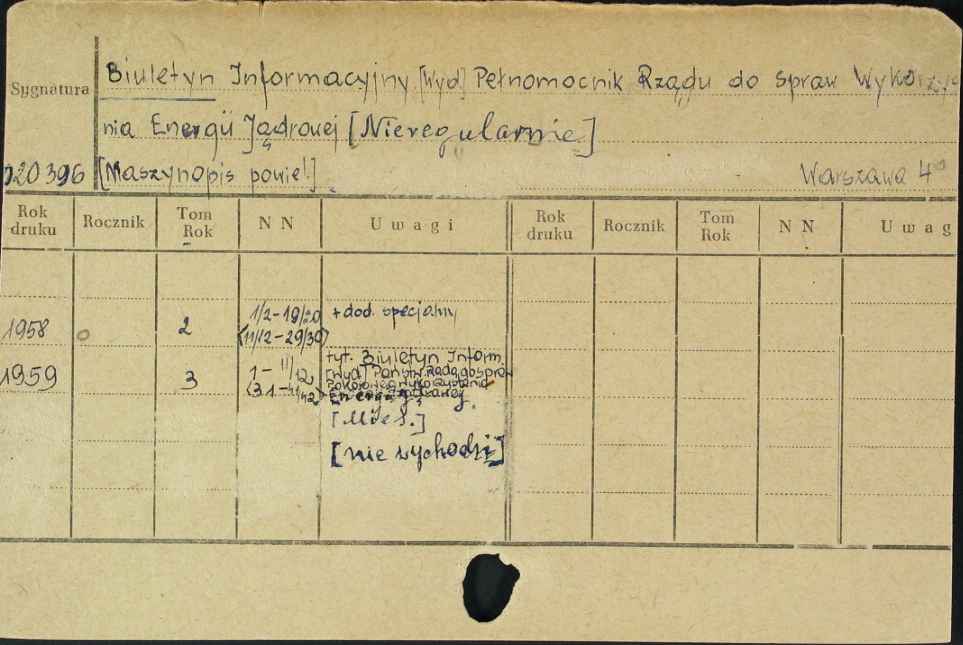 Sygnatura
Biuletyn Informacyjny [Wyd] Pełnomocnik Rządu do spraw Wykorzysta
nia Energii Jądrowej [Nieregularnie]
020396 [Maszynopis powiel.] Warszawa 4°
Rok druku Rocznik Tom Rok N N Uwagi Rok druku Rocznik Tom Rok N N Uwag
1958 2 1/2-19/20 + dod. specjalny
(11/12-29/30)
1959 3 1-11/12 tyt. Biuletyn Inform.
[Wyd] Państw. Rada do spraw
Pokojowego Wykorzystania
(31-41/42) Energii Jądrowej.
[Mies.]
[nie wychodzi]